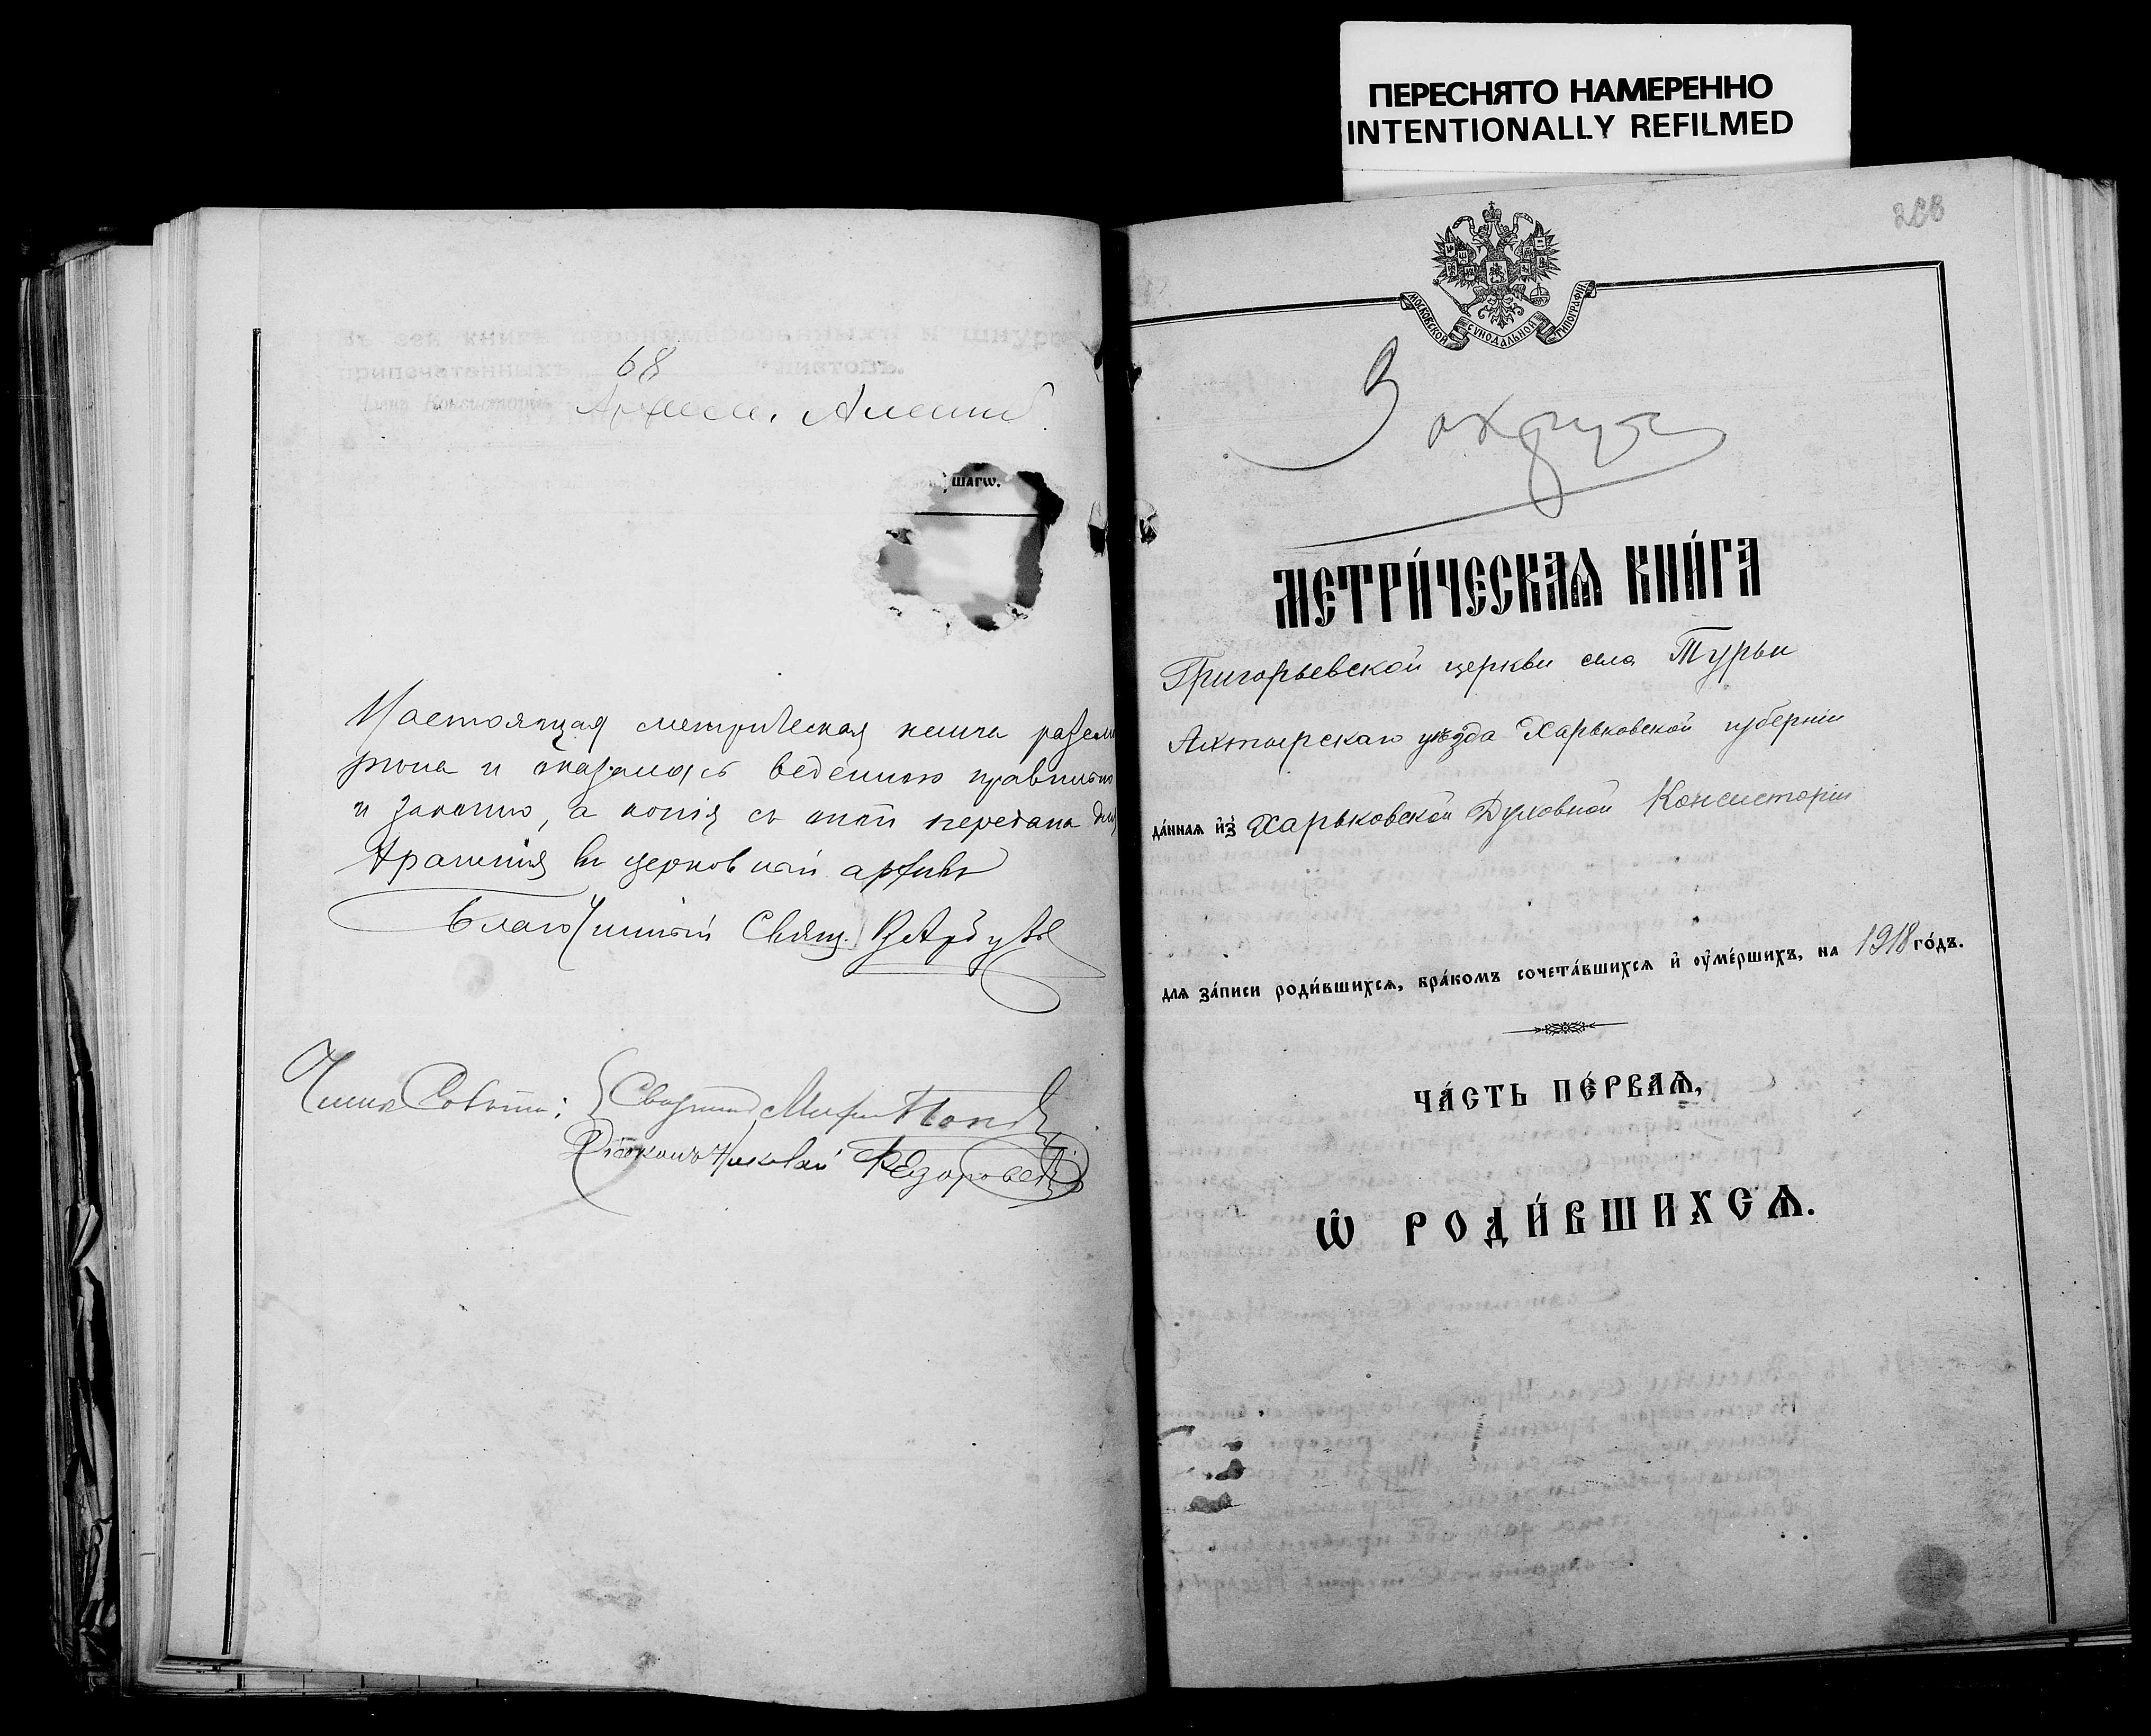 ПЕРЕСНЯТО НАМЕРЕННО
INTENTIONALLY REFILMED
въ сей книгѣ перенумерованныхъ и шнуро
припечатанныхъ 68 листовъ.
Членъ Консисторіи
шагѡ.
Настоящая метрическая книга разсмо
трена и оказалась веденною правильно
и законно, а копія съ оной передана для
храненія въ церковный архивъ
Благочинный Свящ.
Члены Совѣта: Священникъ Поповъ
Діаконъ Николай Ѳедоровскій
МОСКОВСКОЙ СѴНОДАЛЬНОЙ ТИПОГРАФІИ
МЕТРИ́ЧЕСКАѦ КНИ́ГА
Григорьевской церкви села Турьи
Ахтырскаго уѣзда Харьковской губерніи
да́ннаѧ и҆з̾ Харьковской Духовной Консисторіи
длѧ за́писи роди́вшихсѧ, бра́комъ сочета́вшихсѧ и҆ оу҆ме́ршихъ, на 1918 го́дъ.
ЧА́СТЬ ПЕ́РВАѦ,
Ѡ҆ РОДИ́ВШИХСѦ.